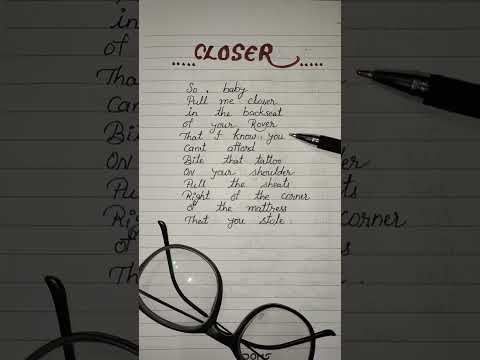 CLOSER
So, baby
Pull me closer
in the backseat
of your Rover
That I know you
Cant afford
Bite that tattoo
On your shoulder
Pull the sheats
Right of the corner
of the mattress
That you stole